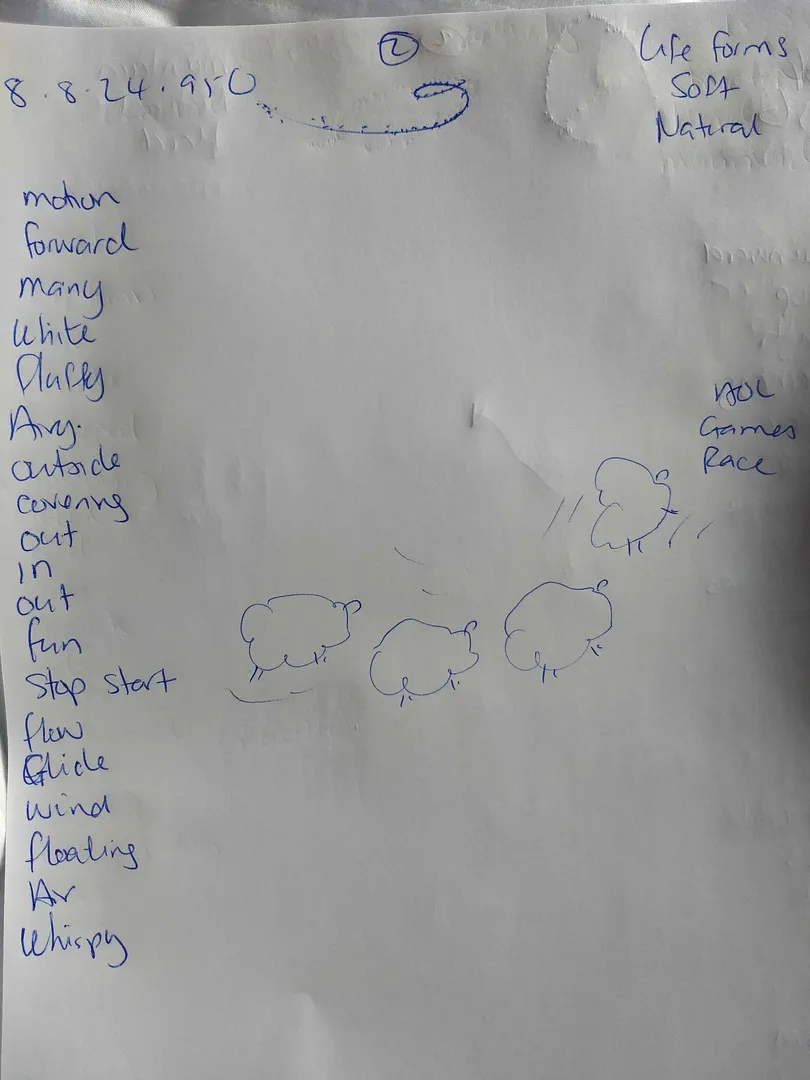 ②
8.8.24.950
Life forms
Soft
Natural
motion
forward
many
White
fluffy
Airy.
outside
covering
out
in
out
fun
Stop start
flow
Glide
wind
floating
Air
Whispy
AOL
Games
Race